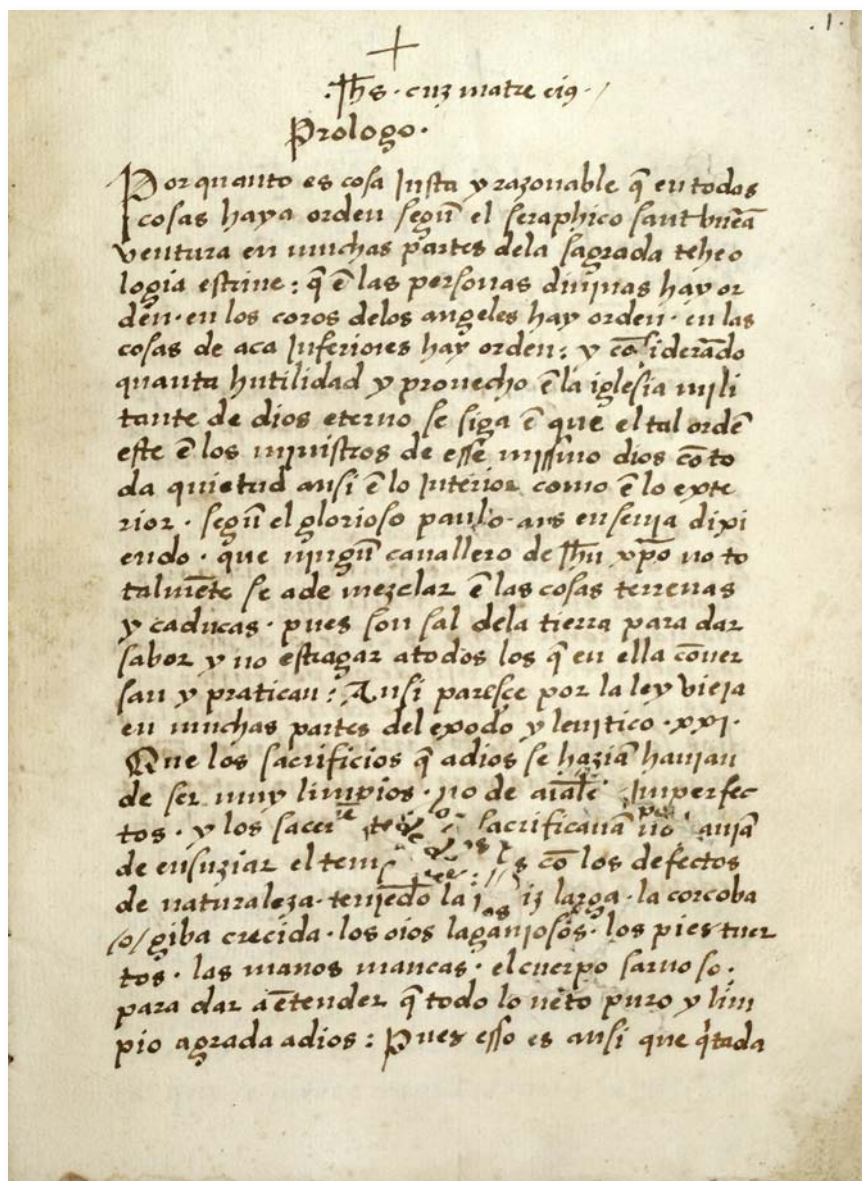 .1.
+
.Jhs. cuz matre ei9.
Prologo.
Por quanto es cosa Justa y razonable q̃ en todas
cosas haya orden segũ el seraphico sant buẽa
ventura en muchas partes dela sagrada teheo
logia escriue: q̃ ẽ las personas diuinas hay or
dẽn. en los coros delos angeles hay orden. en las
cosas de aca Inferiores hay orden: y cõsiderãdo
quanta hutilidad y prouecho ẽ la iglesia mili
tante de dios eterno se siga ẽ que el tal ordẽ
este ẽ los ministros de esse missmo dios cõ to
da quietud ansi ẽ lo Interior como ẽ lo exte
rior. segũ el glorioso paulo. nos ensenia dizi
endo. que ningũ cauallero de Jhu xp̃o no to
talmẽte se ade mezclar ẽ las cosas terrenas
y caducas. pues son sal dela tierra para dar
sabor y no estragar atodos los q̃ en ella cõuer
san y pratican: Ansi paresce por la ley vieja
en muchas partes del exodo y leuitico. xxj.
Que los sacrificios q̃ adios se haziã hauian
de ser muy limpios. no de aĩales Imperfec
tos. y los sacer sacrificauã no auiã
de ensuziar el cõ los defectos
de naturaleza. teniẽdo la larga. la corcoba
/o/ giba crecida. los ojos laganiosos. los pies tuer
tos. las manos mancas. el cuerpo sarnoso.
para dar a ẽtender q̃ todo lo neto puro y lim
pio agrada adios: Pues esso es ansi que q̃tada